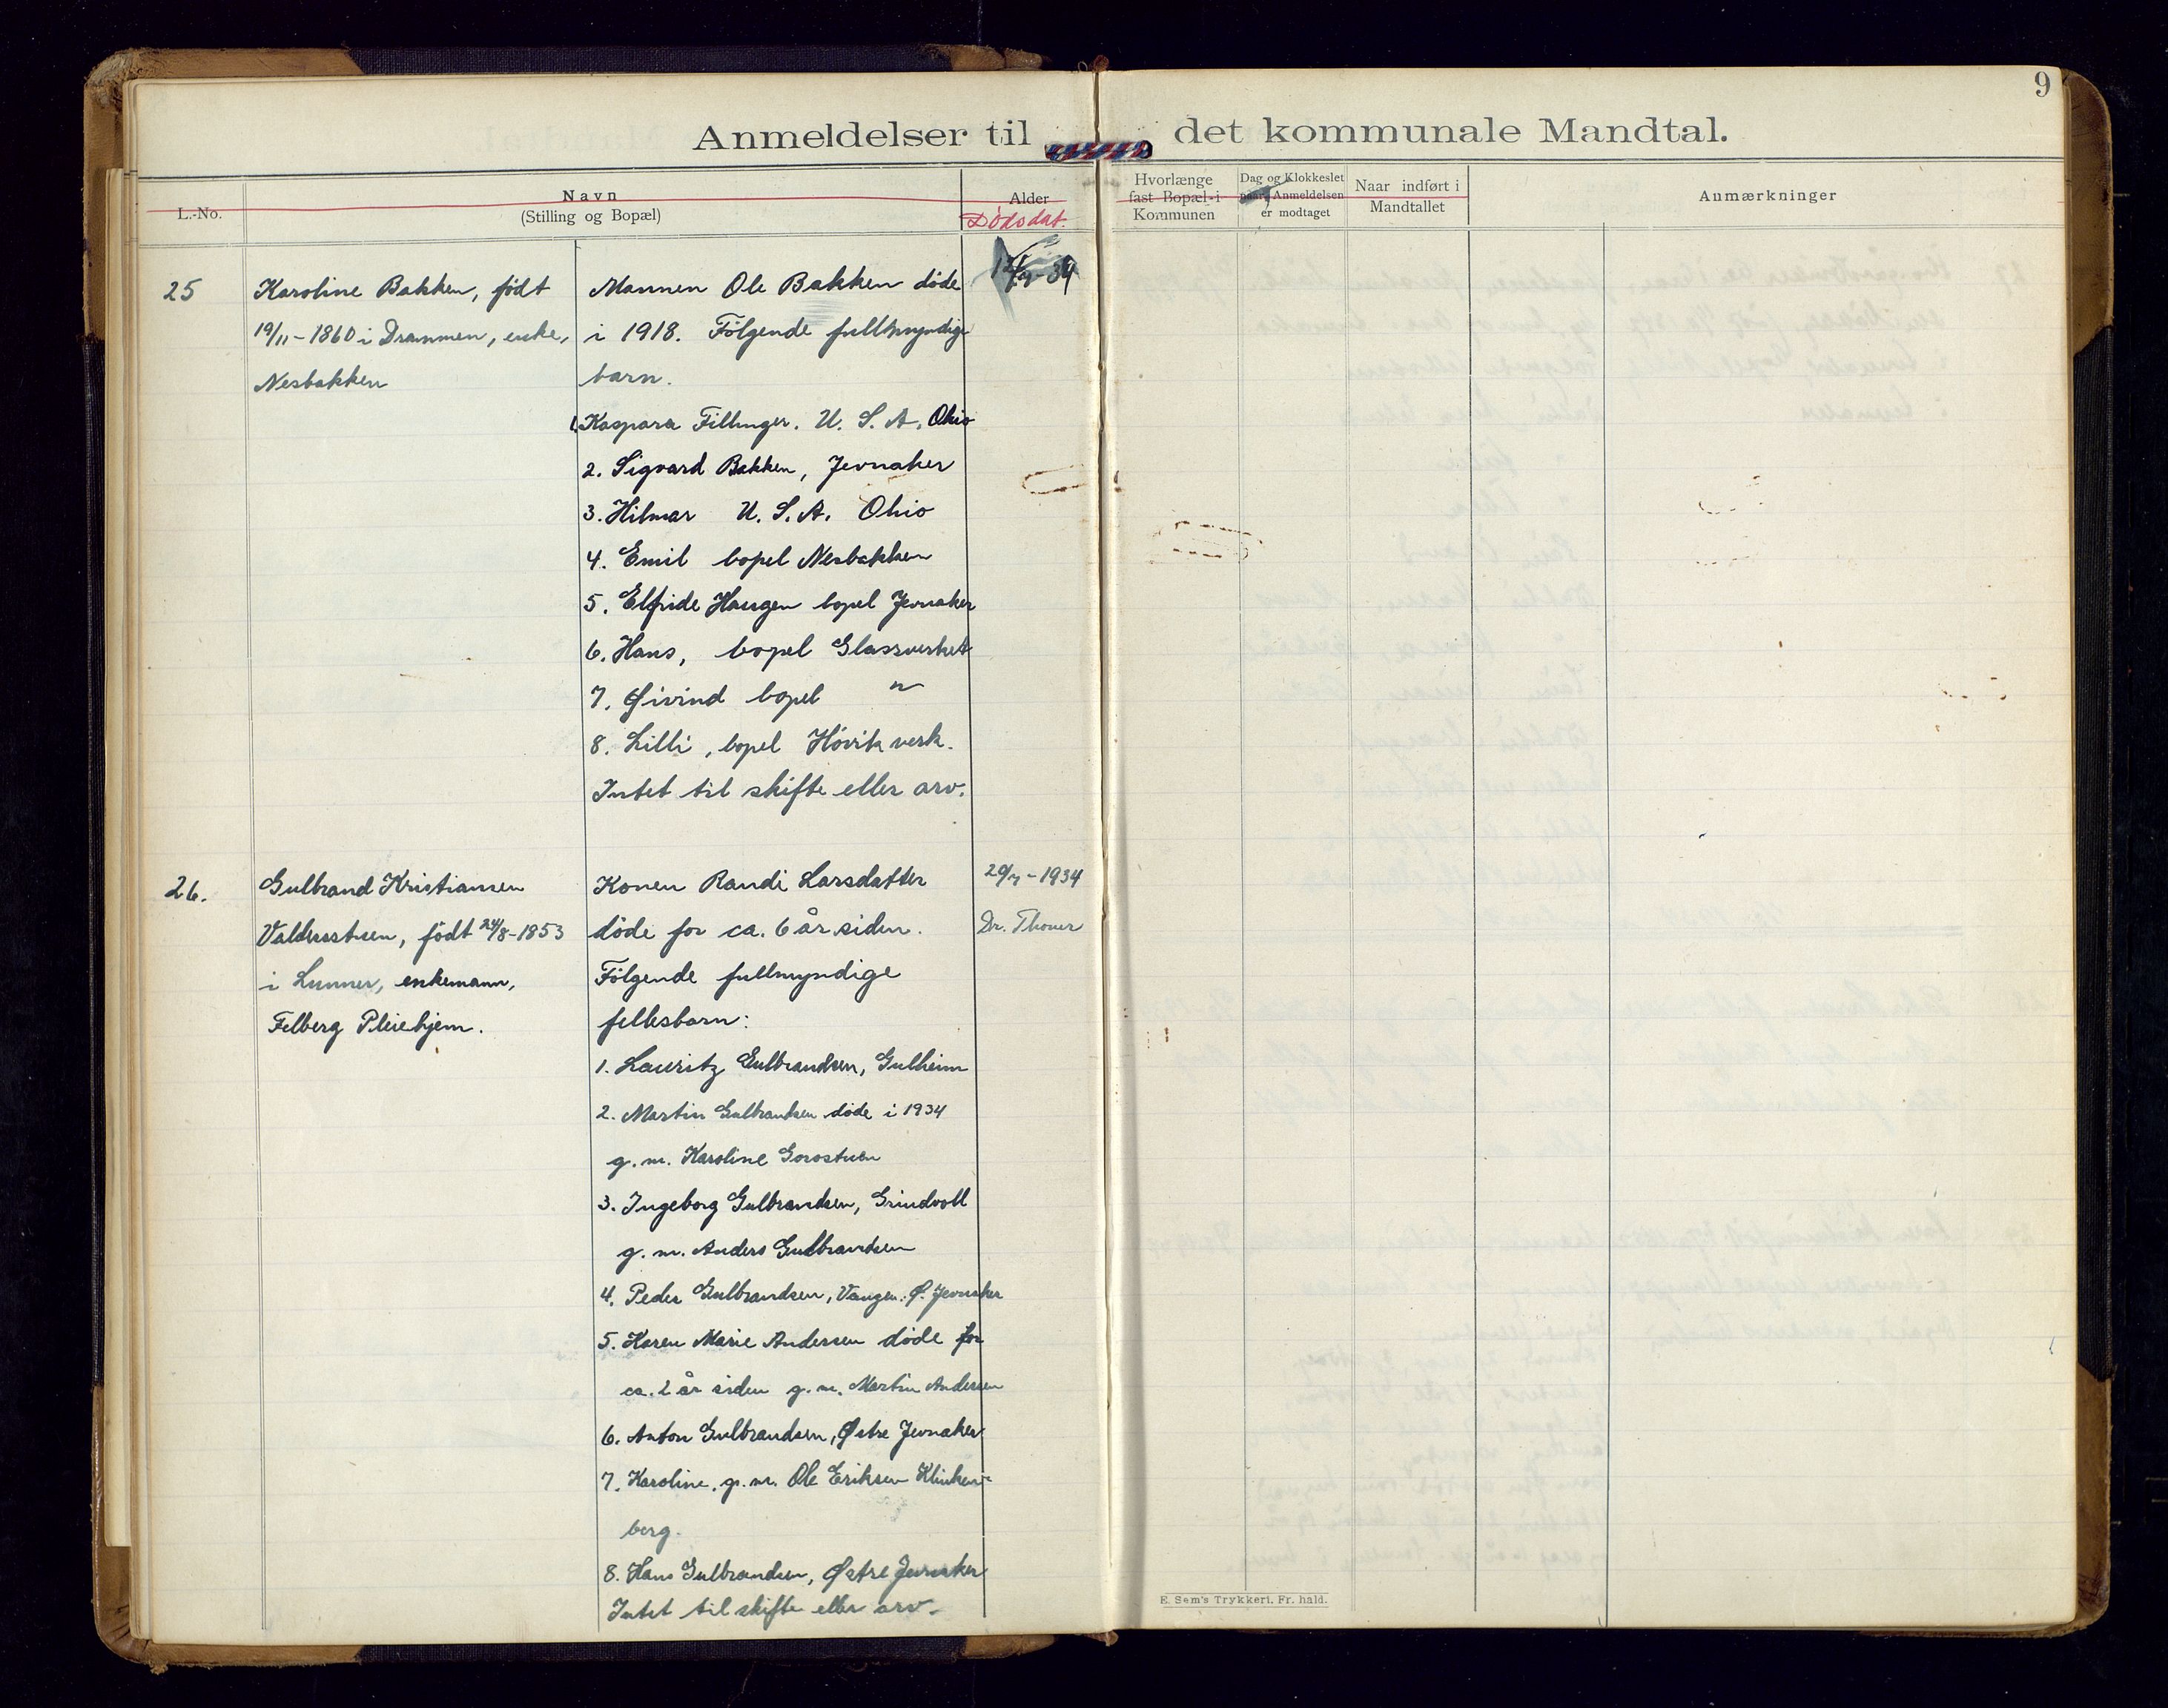 9
Anmeldelser til det kommunale Mandtal.
L.-No.
Navn
(Stilling og Bopæl)
Alder
Dødsdat.
Hvorlænge
fast Bopæl i
Kommunen
Dag og Klokkeslet
Anmeldelsen
er modtaget
Naar indført i
Mandtallet
Aumærkninger
25
Karoline Bakken, født
19/11-1860 i Drammen, enke,
Nesbakken
Mannen Ole Bakken døde
i 1918. Følgende fullmyndige
barn.
1. Kaspara Fillinger. U. S. A. Ohio
2. Sigvard Bakken, Jevnaker
3. Hilmar U. S. A. Ohio
4. Emil bopel Nesbakken
5. Elfride Haugen bopel Jevnaker
6. Hans, bopel Glassverket
7. Øivind bopel "
8. Lilli, bopel Høvik verk.
Intet til skifte eller arv.
26.
Gulbrand Kristiansen
Valdersstuen, født 24/8-1853
i Lunner, enkemann,
Felberg Pleiehjem.
Konen Randi Larsdatter
døde for ca. 6 år siden.
Følgende fullmyndige
fellesbarn:
1. Lauritz Gulbrandsen, Gulheim
2. Martin Gulbrandsen døde i 1934
g. m. Karoline Gorostuen
3. Ingeborg Gulbrandsen, Grindvoll
g. m. Anders Gulbrandsen
4. Peder Gulbrandsen, Vangen. Ø. Jevnaker
5. Karen Marie Andersen døde for
ca. 2 år siden g. m. Martin Andersen
6. Anton Gulbrandsen, Østre Jevnaker
7. Karoline, g. m. Ole Eriksen Klinken-
berg.
8. Hans Gulbrandsen, Østre Jevnaker
Intet til skifte eller arv.
29/7-1934
Dr. Thoner
E. Sem's Trykkeri. Fr. hald.